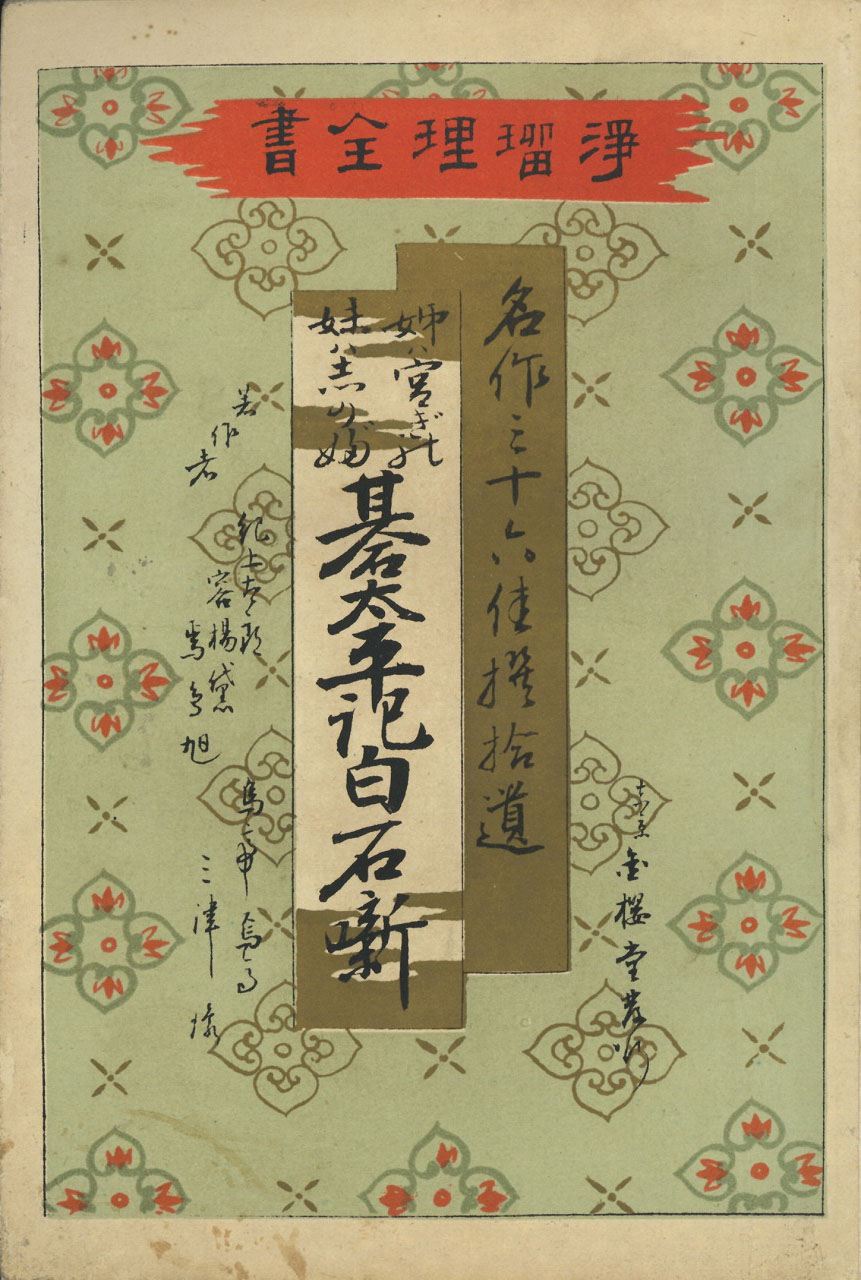 淨瑠理全書
名作三十六佳撰拾遺
姉ハ宮ぎの
妹ハ志のぶ
碁太平記白石噺
著作者
紀上太郎
容楊黛
焉馬旭
烏亭焉馬
三津環
東京 金櫻堂發行